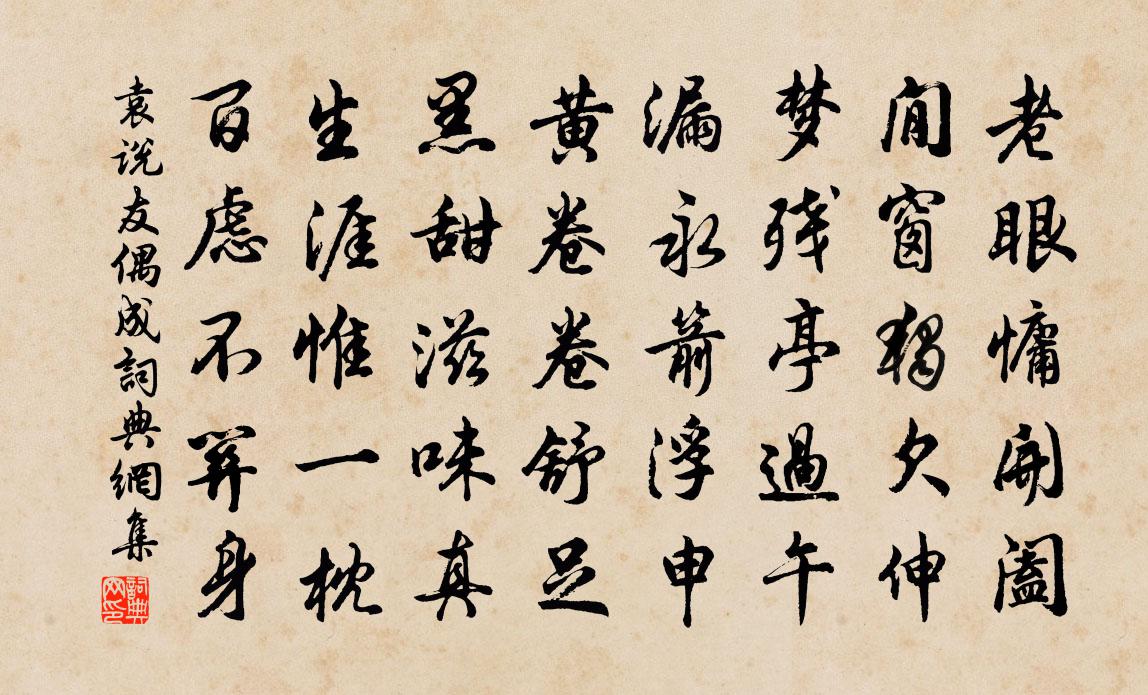 老眼慵開闔
閒窗獨欠伸
梦残亭過午
漏永箭浮申
黄卷卷舒足
黑甜滋味真
生涯惟一枕
百慮不關身
袁说友偶成詞典網集
詞典网印